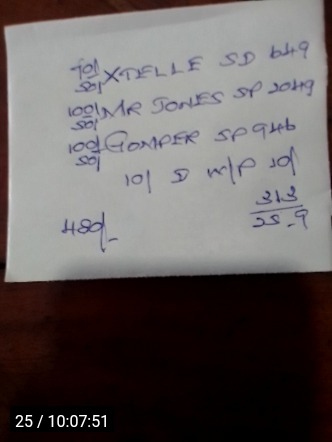 70/ 50/ XTELLE SD 649
100/ 50/ MR JONES SP 2049
100/ 50/ GOMPER SP 946
10/ D W/P 10/
313
480/- 25-9
25 / 10:07:51